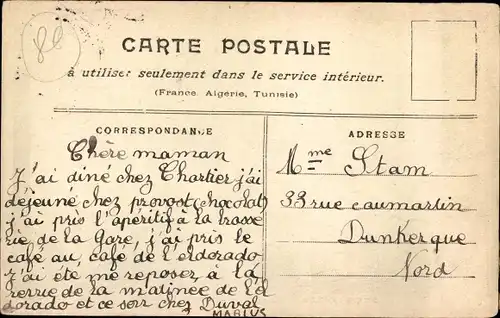 CARTE POSTALE
à utiliser seulement dans le service intérieur.
(France, Algérie, Tunisie)
CORRESPONDANCE
Chère maman
J'ai diné chez Chartier j'ai
déjeuné chez provost (chocolat)
j'ai pris l'apéritif à la brasse
rie de la Gare, j'ai pris le
café au, café de l'eldorado
J'ai été me reposez à la
rerrie de la matinée de l'el
dorado et ce soir chez Duval
MARIUS
ADRESSE
Mme Stam
33 rue caumartin
Dunkerque
Nord